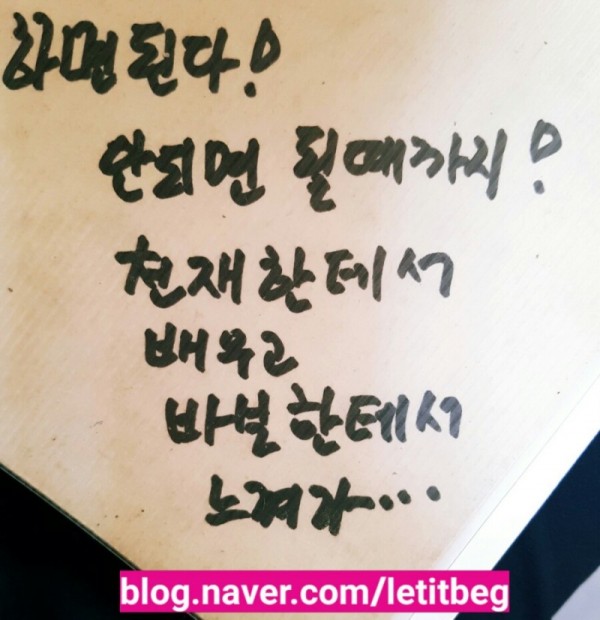 하면된다!
안되면 될때까지!
천재한테서
배우고
바벌한테서
느껴라...
blog.naver.com/letitbeg